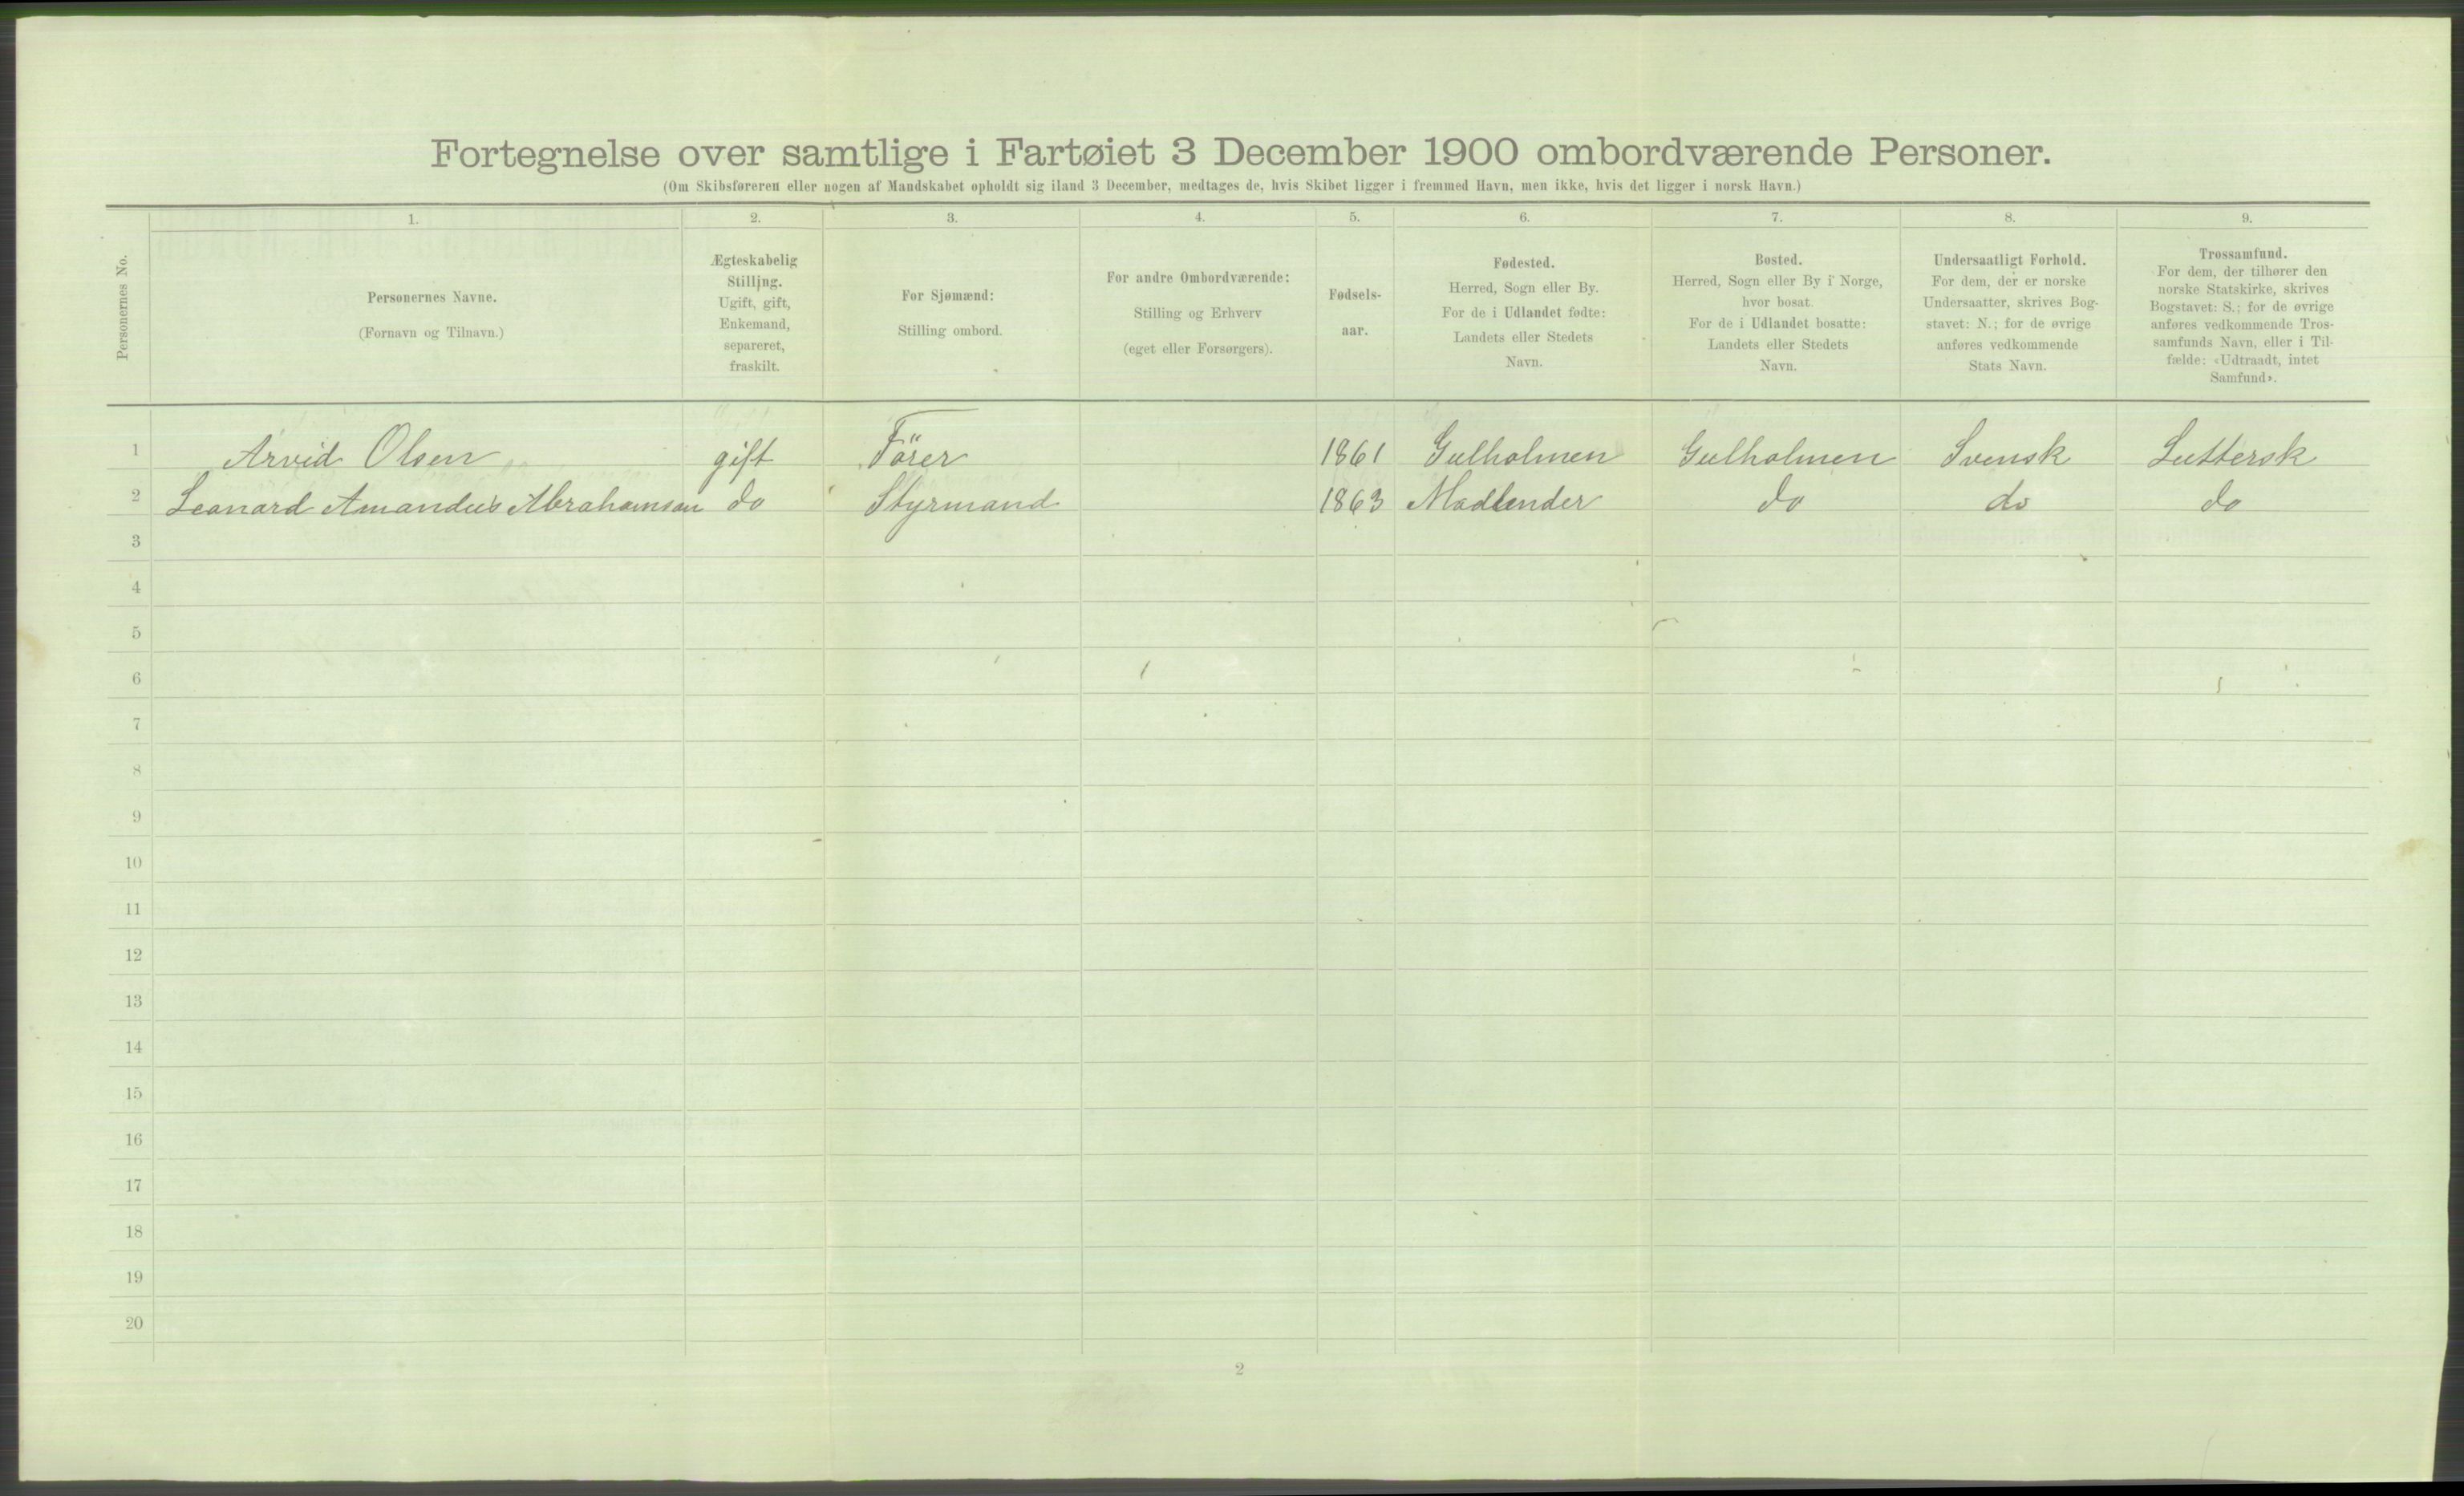 Fortegnelse over samtlige i Fartøiet 3 December 1900 ombordværende Personer.
(Om Skibsføreren eller nogen af Mandskabet opholdt sig iland 3 December, medtages de, hvis Skibet ligger i fremmed Havn, men ikke, hvis det ligger i norsk Havn.)
Personernes No.
1.
Personernes Navne.
(Fornavn og Tilnavn.)
2.
Ægteskabelig
Stilling.
Ugift, gift,
Enkemand,
separeret,
fraskilt.
3.
For Sjømænd:
Stilling ombord.
4.
For andre Ombordværende:
Stilling og Erhverv
(eget eller Forsørgers).
5.
Fødsels-
aar.
6.
Fødested.
Herred, Sogn eller By.
For de i Udlandet fødte:
Landets eller Stedets
Navn.
7.
Bosted.
Herred, Sogn eller By i Norge,
hvor bosat.
For de i Udlandet bosatte:
Landets eller Stedets
Navn.
8.
Undersaatligt Forhold.
For dem, der er norske
Undersaatter, skrives Bog-
stavet: N.; for de øvrige
anføres vedkommende
Stats Navn.
9.
Trossamfund.
For dem, der tilhører den
norske Statskirke, skrives
Bogstavet: S.; for de øvrige
anføres vedkommende Tros-
samfunds Navn, eller i Til-
fælde: «Udtraadt, intet
Samfund».
1 Arvid Olsen gift Förer 1861 Gulholmen Gulholmen Svensk Luttersk
2 Leonard Amandus Abrahamsan do Styrmand 1863 Madlender do do do
3
4
5
6
7
8
9
10
11
12
13
14
15
16
17
18
19
20
2